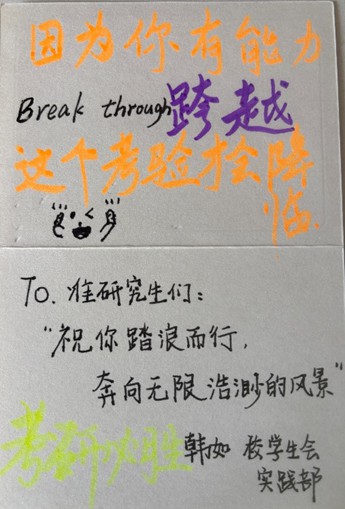 因为你有能力
Break through跨越
这个考验才会降
临
To. 准研究生们:
"祝你踏浪而行,
奔向无限浩渺的风景"
考研必胜 韩如 校学生会
实践部